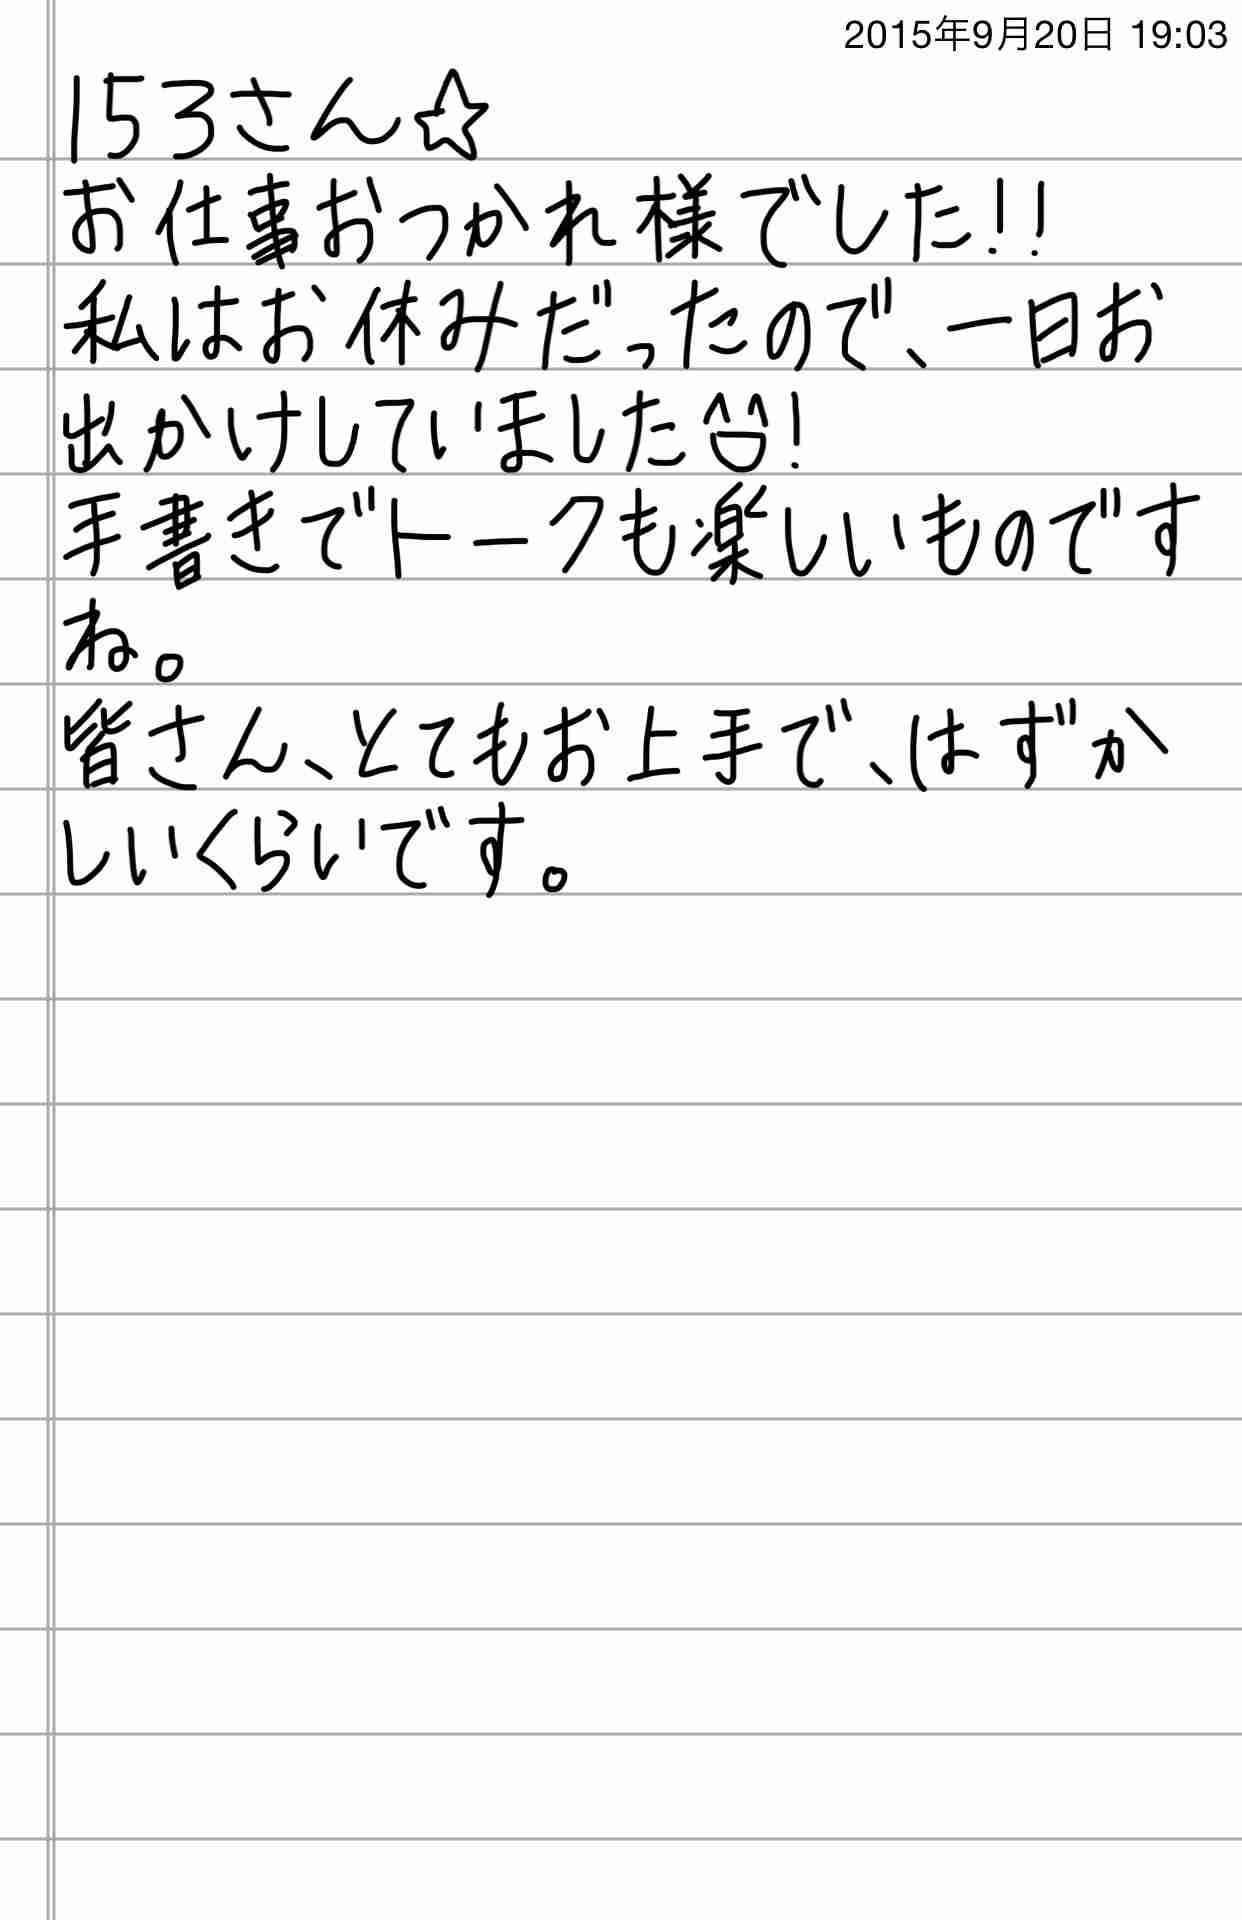 2015年9月20日 19:03
153さん☆
お仕事おつかれ様でした!!
私はお休みだったので、一日お
出かけしていました😊!
手書きでトークも楽しいものです
ね。
皆さん、とてもお上手で、はずか
しいくらいです。